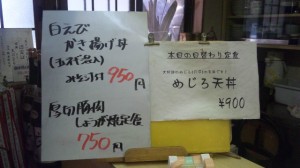 白えび
かき揚げ丼
みそ汁付 950円
厚切豚肉
しょうが焼定食
750円
本日の日替わり定食
めじろ天丼
¥900